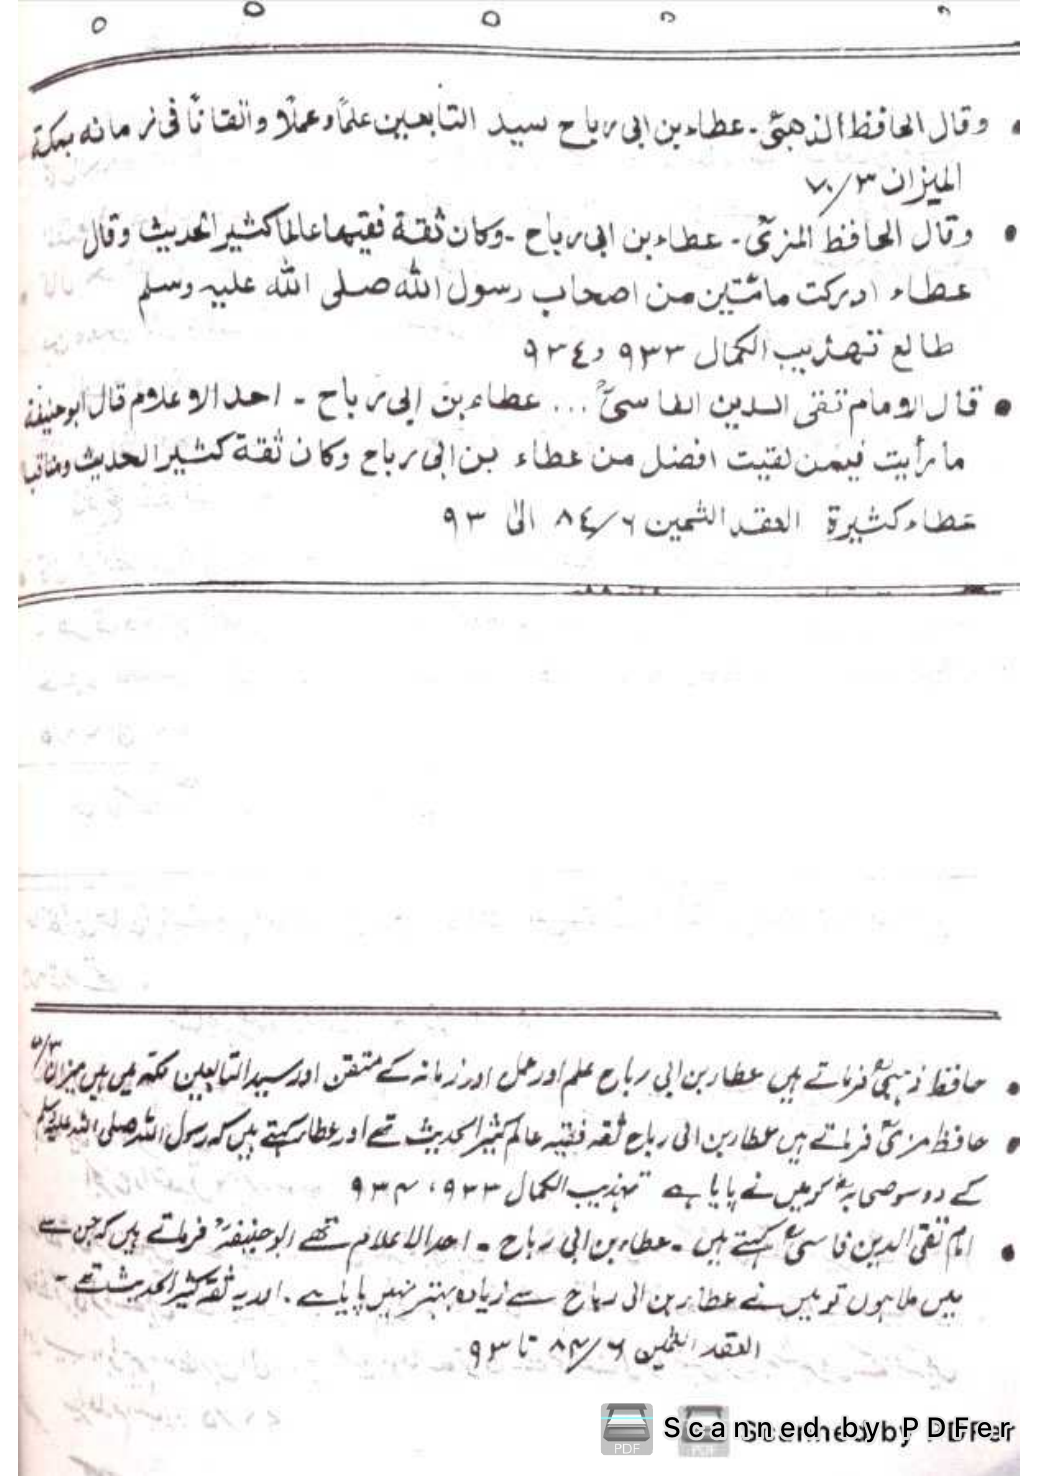 وقال الحافظ الذهبیؒ - عطاء بن ابی رباح سید التابعین علماً وعملاً واتقاناً فی زمانه بمکة
المیزان ٣/٧٠
وقال الحافظ المزیؒ - عطاء بن ابی رباح - وکان ثقة فقیها عالما کثیر الحدیث وقال
عطاء ادرکت مائتین من اصحاب رسول الله صلی الله علیه وسلم
طالع تهذیب الکمال ٩٣٣ و ٩٣٤
قال الامام تقی الدین الفاسیؒ ... عطاء بن ابی رباح - احد الاعلام قال ابو حنیفة
ما رأیت فیمن لقیت افضل من عطاء بن ابی رباح وکان ثقة کثیر الحدیث ومناقب
عطاء کثیرة العقد الثمین ٦/٨٤ الی ٩٣
حافظ ذہبیؒ فرماتے ہیں عطاء بن ابی رباح علم اور عمل اور زمانہ کے متقن اور سید التابعین مکہ میں ہیں میزان
حافظ مزیؒ فرماتے ہیں عطاء بن ابی رباح ثقہ فقیہ عالم کثیر الحدیث تھے اور عطاء کہتے ہیں کہ رسول اللہ صلی اللہ علیہ وسلم
کے دو سو صحابہؓ کو میں نے پایا ہے تہذیب الکمال ۹۳۳، ۹۳۴
امام تقی الدین فاسیؒ کہتے ہیں - عطاء بن ابی رباح - احد الاعلام تھے ابو حنیفہؒ فرماتے ہیں کہ جن سے
میں ملا ہوں تو میں نے عطاء بن ابی رباح سے زیادہ بہتر نہیں پایا ہے - اور یہ ثقہ کثیر الحدیث تھے -
العقد الثمین ۶/۸۴ تا ۹۳
Scanned by PDFer